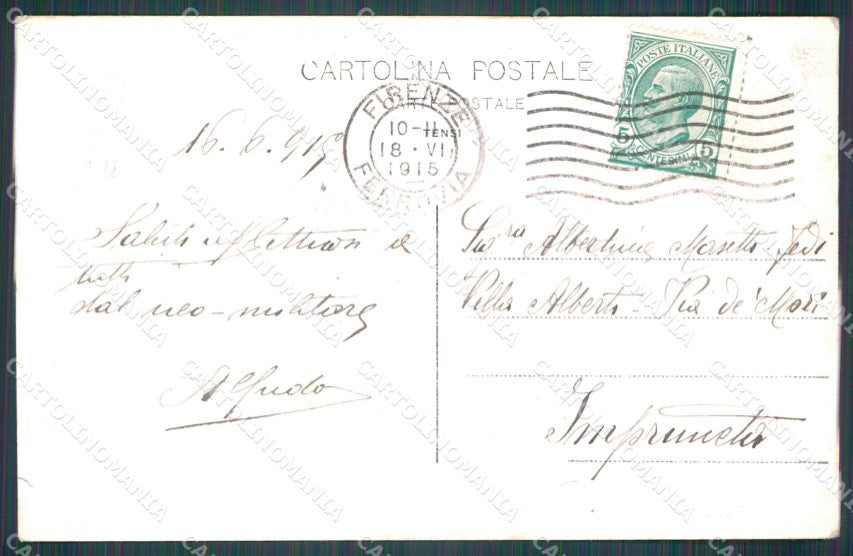 CARTOLINA POSTALE
CARTE POSTALE
FIRENZE
10-11
TENSI
18·VII
1915
FERROVIA
POSTE ITALIANE
5 CENTESIMI 5
16.6.915
Saluti affettuosi a
tutti
dal neo-militare
Alfredo
Sig.ra Albertina
Villa Alberti - Via de' Mori
Impruneta
CARTOLINOMANIA